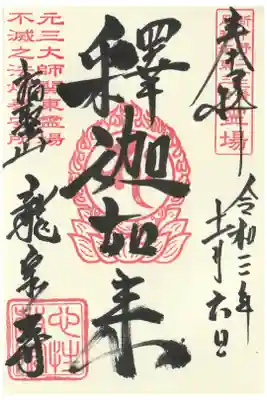 奉拝
霊場
令和三年
十一月六日
釋迦如来
元三大師関東霊場
不滅之法燈奉安所
龍泉寺